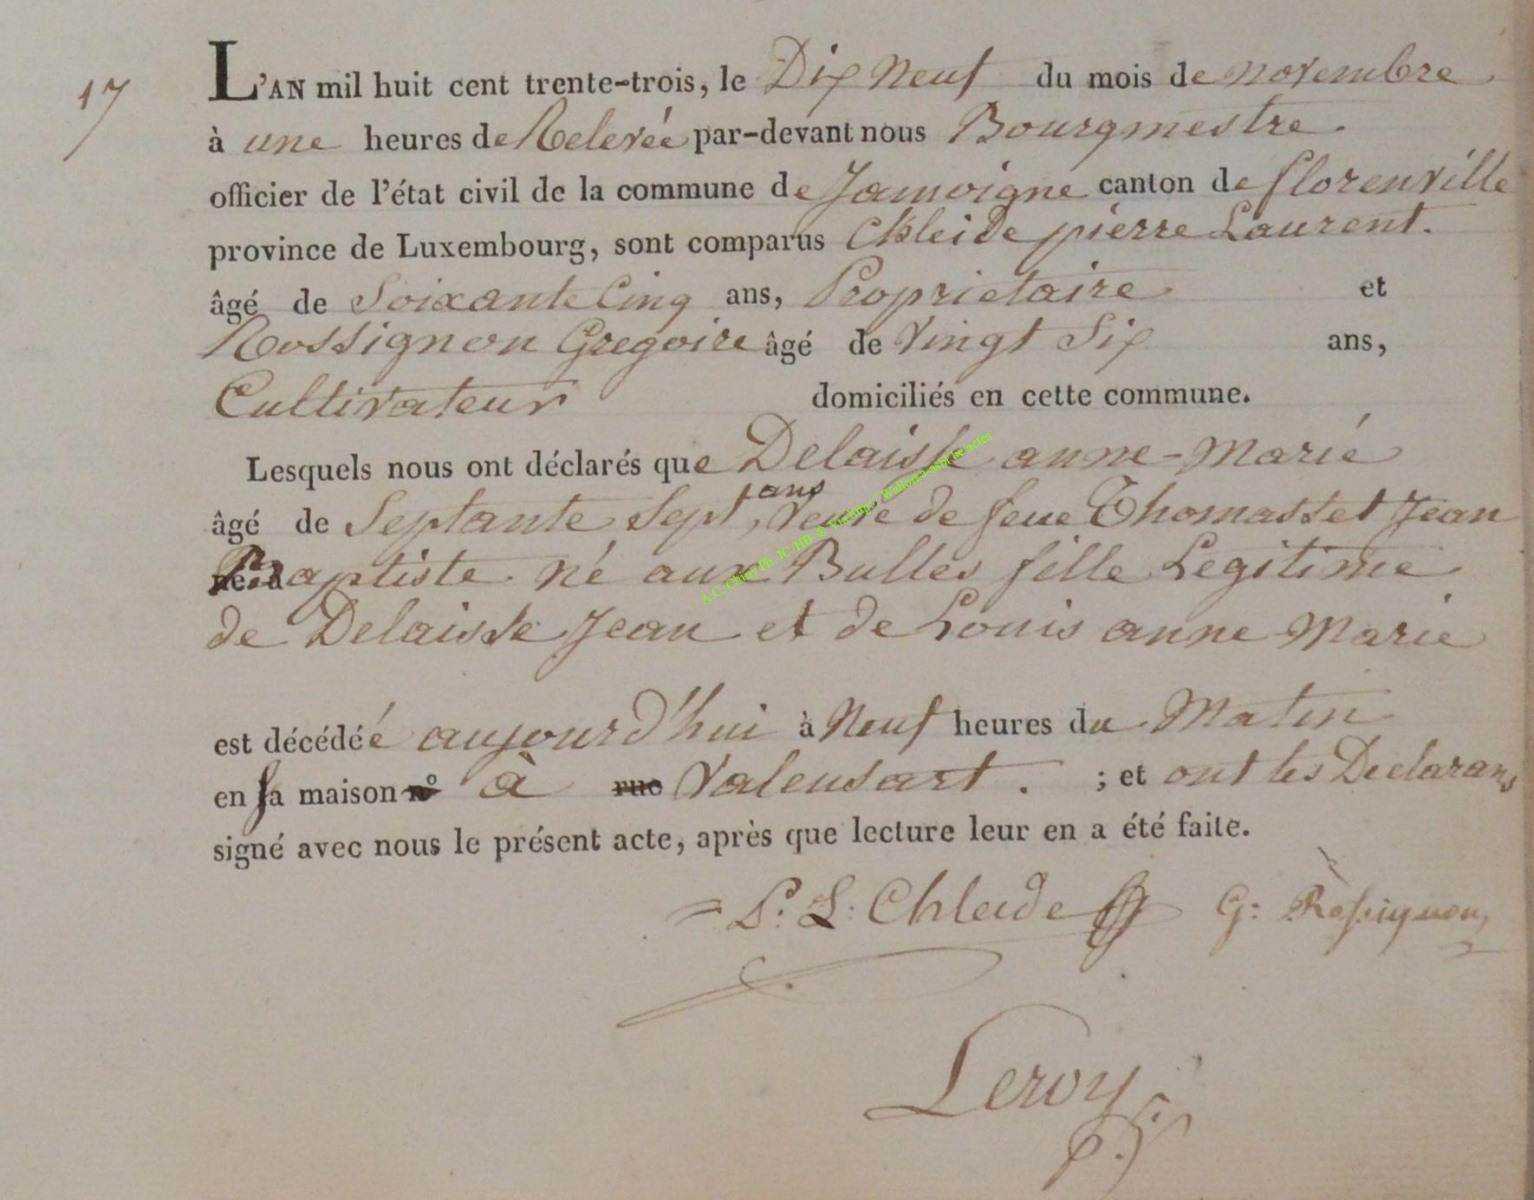 17
L'AN mil huit cent trente-trois, le Dix Neuf du mois de novembre
à une heures de Relevée par-devant nous Bourgmestre.
officier de l'état civil de la commune de Jamoigne canton de florenville
province de Luxembourg, sont comparus Chleide pierre Laurent.
âgé de Soixante Cinq ans, Proprietaire et
Rossignon Gregoire âgé de Vingt Six ans,
Cultivateur domiciliés en cette commune.
Lesquels nous ont déclarés que Delaisse anne-Marie
ans
âgé de Septante Sept, Veuve de feue Thomasset Jean
Baptiste né aux Bulles fille Legitime
de Delaisse Jean et de Louis anne Marie
est décédéé aujourd'hui à Neuf heures du Matin
en sa maison n° à rue Valensart. ; et ont les Declarans
signé avec nous le présent acte, après que lecture leur en a été faite.
P. L. Chleide G: Rossignon
Leroy